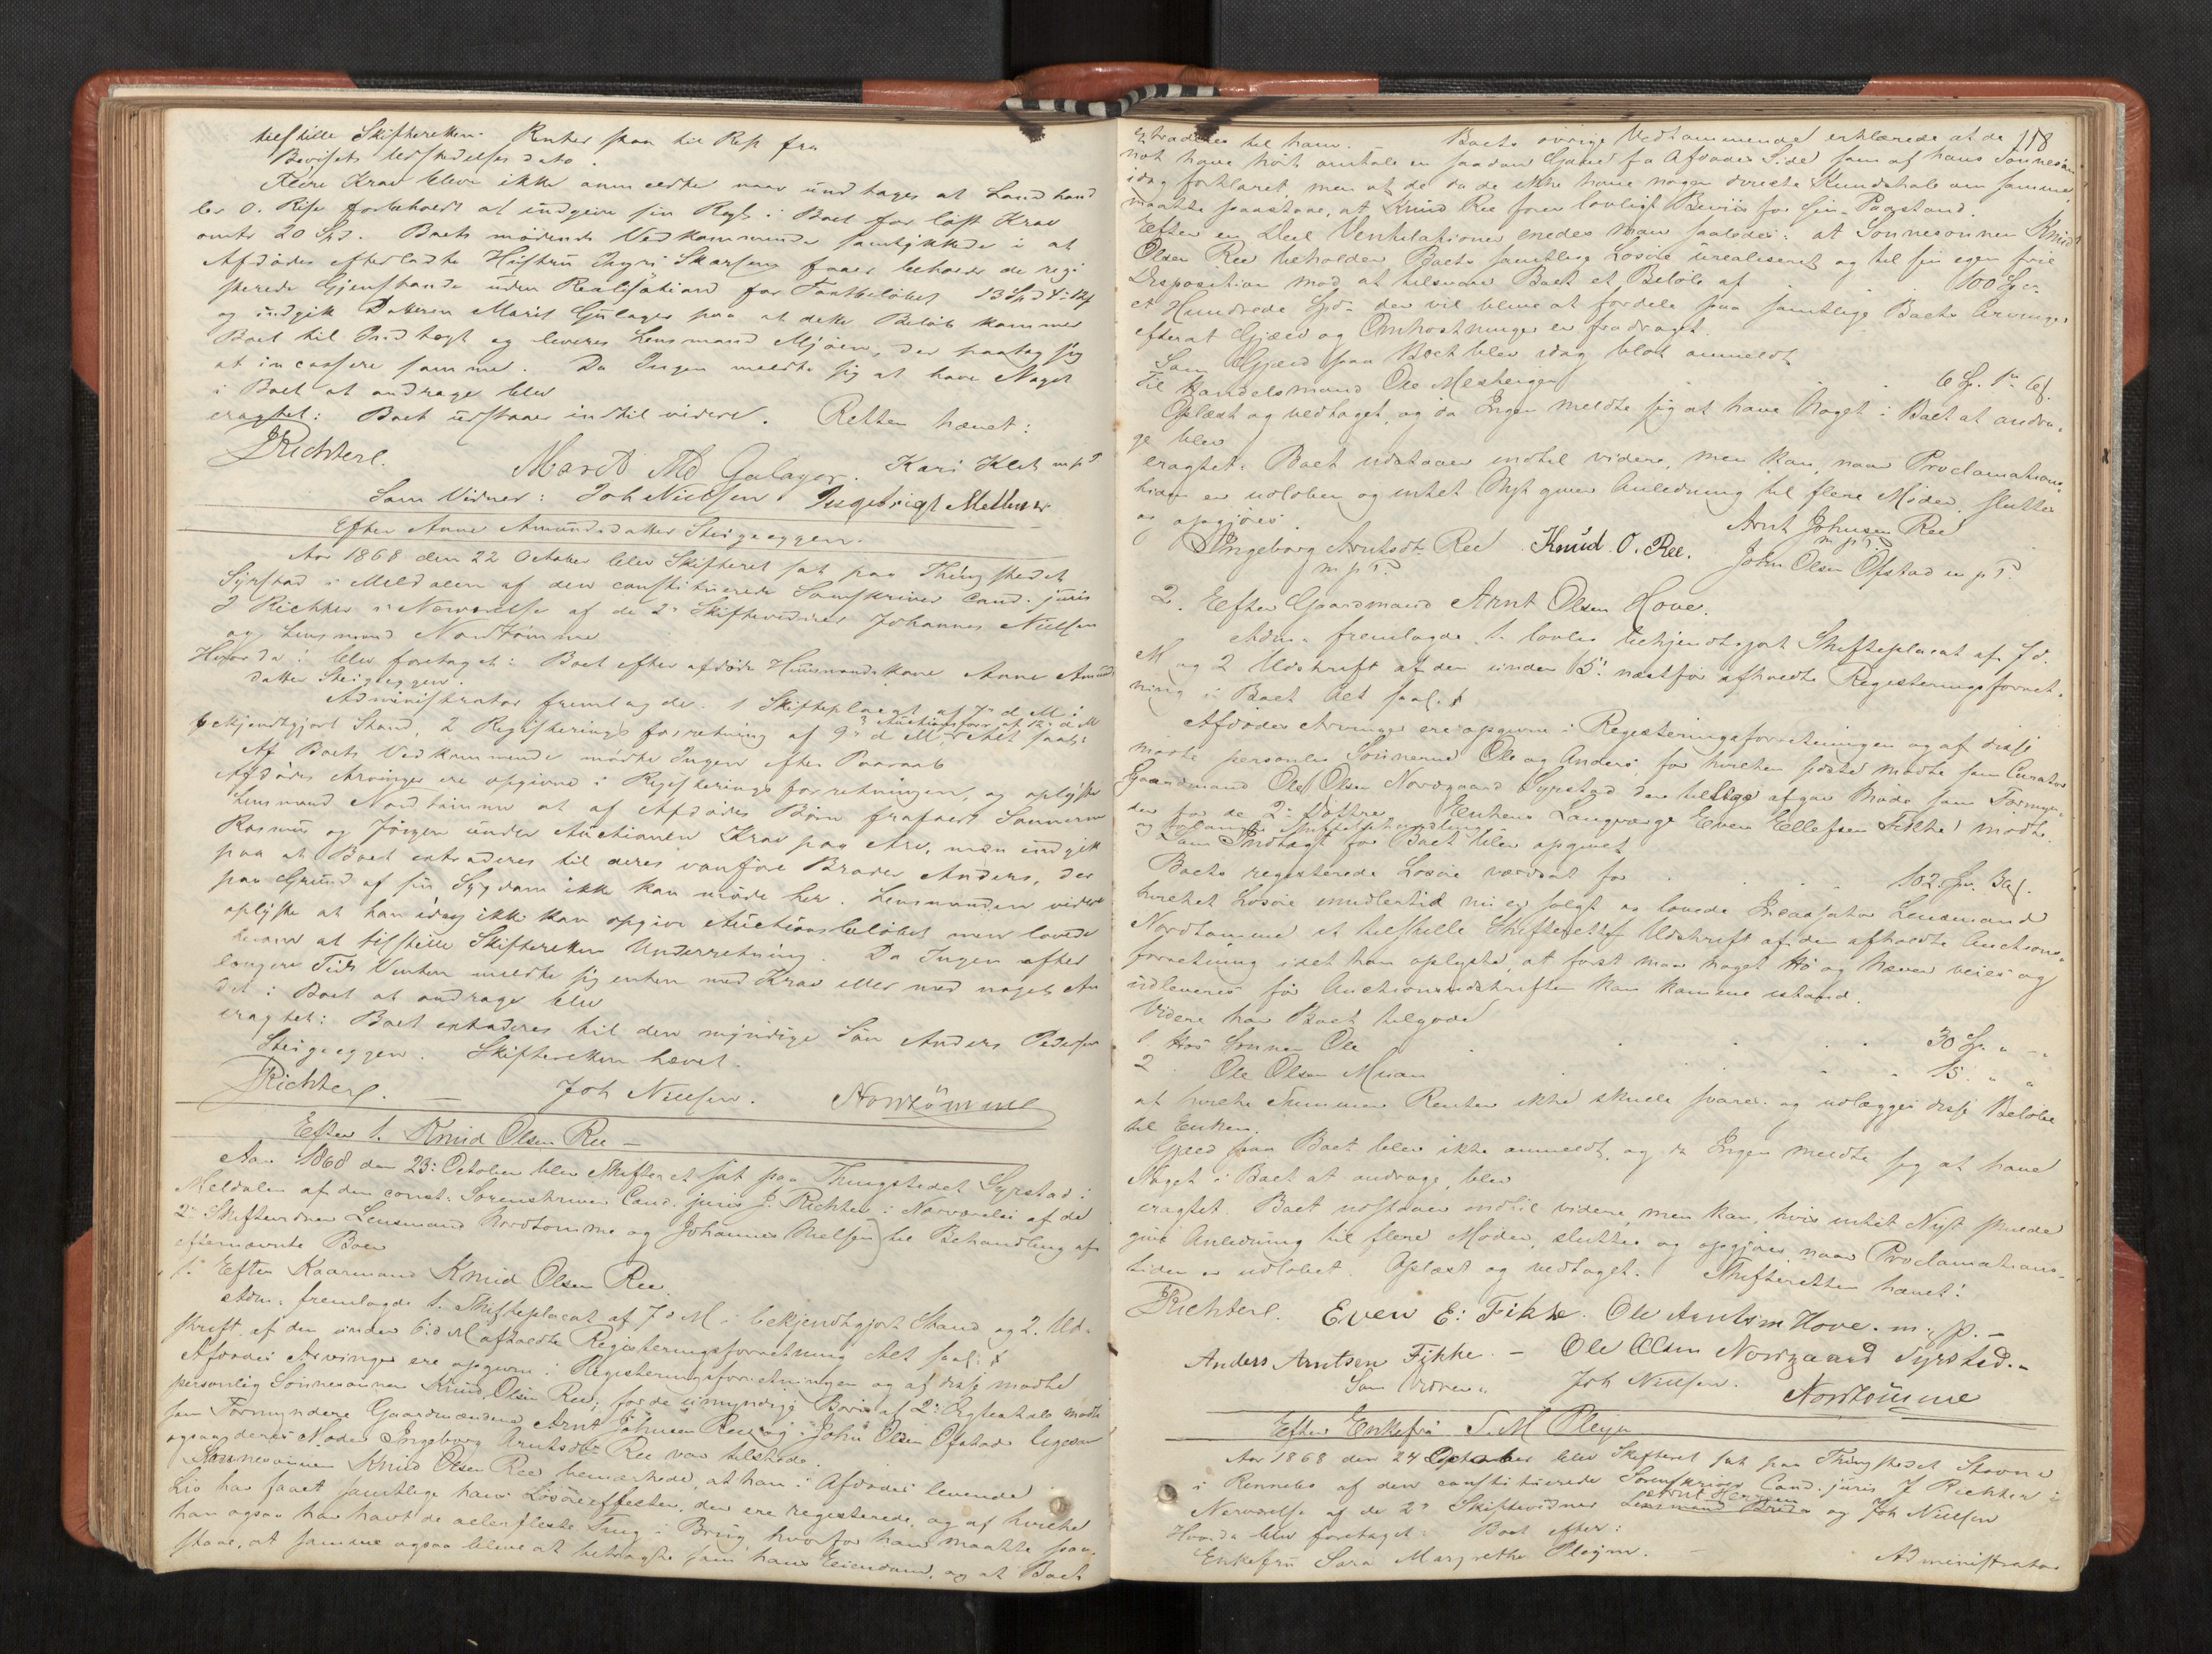 tilstille Skifteretten. Renter paa til Rest fra
Bevisets Udstedelses dato.
Flere Krav bleve ikke anmeldte naar undtages at Landhand
ler O. Rise forbeholdt at indgive sin Regl. i Boet for løst Krav
omtr 20 Spd. Boets mødende Vedkommende samtykkede i at
Afdødes efterladte Hustru Ingri Skarseng faaer beholde de regi
strerede Gjenstande uden Realisation for Taxtbeløbet 13 Spd 4 " 12 s
og indgik Datteren Marit Gulager paa at dette Beløb kommer
Boet til Indtægt og leveres Lensmand Mjøen, der paatog sig
at incassere samme. Da Ingen meldte sig at have Noget
i Boet at andrage blev
eragtet: Boet udstaaer indtil videre. Retten hævet:
JRichter. Marit Md Gulager. Kari Klet m p P
Som Vidner: Joh Nielsen Ingebrigt Mellemer
Efter Anne Amundsdatter Steigeggen.
Aar 1868 den 22 October blev Skifteret sat paa Thingstedet
Syrstad i Meldalen af den constituerede Sorenskriver Cand. juris
J Richter i Nærværelse af de 2de Skiftevidner Johannes Nielsen
og Lensmand Nordtømme
Hvor da: blev foretaget: Boet efter afdøde Huusmandskone Anne Amunds
datter Steigeggen.
Administrator fremlagde. 1 Skifteplacat af 7de d M i
bekjendtgjort Stand, 2 Registrerings forretning af 9de d M, 3 Auctionsforr. af 12te d M Alt saal:
Af Boets Vedkommende mødte Ingen efter Paaraab
Afdødes Arvinger ere opgivne i Registrerings forretningen, og oplyste
Lensmand Nordtømme at af Afdødes Børn frafaldt Sønnerne
Rasmus og Jörgen under Auctionen Krav paa Arv, men indgik
paa at Boet extraderes til deres vanføre Broder Anders, der
paa Grund af sin Sygdom ikke kan møde her. Lensmanden videre
oplyste at han idag ikke kan opgive Auctionsbeløbet men lovede
derom at tilstille Skifteretten Underretning. Da Ingen efter
længere Tids Venten meldte sig enten med Krav eller med noget An
det i Boet at andrage blev
eragtet: Boet extraderes til den myndige Søn Anders Pedersen
Steigeggen. Skifteretten hævet.
JRichter. Joh Nielsen. Nordtömme
Efter 1. Knud Olsen Ree —
Aar 1868 den 23: October blev Skifteret sat paa Thingstedet Syrstad i
Meldalen af den const. Sorenskriver Cand. juris J. Richter i Nærværelse af de
2de Skiftevidner Lensmand Nordtømme og Johannes Nielsen) til Behandling af
efternævnte Boer
1. Efter Kaarmand Knud Olsen Ree.
Adm. fremlagde 1. Skifteplacat af 7 d M i bekjendtgjort Stand og 2. Ud-
skrift af den under 6: d M afholdte Registreringsforretning Alt saal:
Afdødes Arvinger ere opgivne i Registreringsforretningen og af disse mødte
personlig Sønnesønnen Knud Olsen Ree; for de umyndige Børn af 2: Ægteskab mødte
som Formyndere Gaardmændene Arnt Johnsen Ree og John Olsen Ofstad ligesom
ogsaa deres Moder Ingeborg Arntsdtr Ree var tilstede.
Sønnesønnen Knud Olsen Ree bemærkede, at han i Afdødes levende
Liv har faaet samtlige hans Løsøreeffecter, der ere registrerede, og af hvilke
han ogsaa har havt de allerfleste Ting i Brug hvorfor han maatte paa-
staae, at samme ogsaa bleve at betragte som hans Eiendom, og at Boet
118
extraderes til ham. — Boets øvrige Vedkommende erklærede at de
nok have hørt omtale en saadan Gave fra Afdødes Side som af hans Sønnesøn
idag forklaret, men at de da de ikke have nogen directe Kundskab om samme
maatte paastaae, at Knud Ree fører lovligt Beviis for sin Paastand.
Efter en Deel Ventilationer enedes man saaledes: at Sønnesønnen Knud
Olsen Ree beholder Boets samtlige Løsøre urealiseret og til sin egen frie
Disposition mod at tilsvare Boet et Beløb af . . 100 Sp.
et Hundrede Spd. der vil blive at fordele paa samtlige Boets Arvinger
efterat Gjæld og Omkostninger er fradraget.
Som Gjæld paa Boet blev idag blot anmeldt
Til Handelsmand Ole Meshergen . . 6 Sp. 1 " 6 s.
Oplæst og vedtaget, og da Ingen meldte sig at have Noget i Boet at andra-
ge blev
eragtet: Boet udstaaer indtil videre, men kan, naar Proclamations-
tiden er udløben og intet Nyt giver Anledning til flere Møder, sluttes
og opgjøres.
Ingeborg Arntsdtr Ree m p P. Knud. O. Ree. Arnt Johnsen Ree m p P.
John Olsen Ofstad m p P.
2. Efter Gaardmand Arnt Olsen Hove.
Adm. fremlagde 1. lovlig bekjendtgjort Skifteplacat af 7 d.
M og 2 Udskrift af den under 15: næstfør afholdte Registreringsforret-
ning i Boet Alt saal.
Afdødes Arvinger ere opgivne i Registreringsforretningen og af disse
mødte personlig Sønnerne Ole og Anders, for hvilken sidste mødte som Curator
Gaardmand Ole Olsen Nordgaard Syrstad der tillige afgav Møde som Formyn-
der for de 2de Døttre. Enkens Laugværge Even Ellefsen Fikke mødte
og
Som Indtægt for Boet blev opgivet
Boets registrerede Løsøre værdsat for . . . 102 Sp. 3
hvilket Løsøre imidlertid nu er solgt og lovede Incassator Lensmand
Nordtømme at tilstille Skifteretten Udskrift af den afholdte Auctions-
forretning idet han oplyste, at først maa noget Hø og Næver veies og
udleveres før Auctionsudskriften kan komme istand.
Videre har Boet tilgode
1. Hos Sønnen Ole . . . . 30 Sp. " — "
2. Ole Olsen Muan . . . . 15. " "
af hvilke Summer Renter ikke skulle svares. og udlægges disse Beløbe
til Enken.
Gjæld paa Boet blev ikke anmeldt, og da Ingen meldte sig at have
Noget i Boet at andrage, blev
eragtet. Boet udstaaer indtil videre, men kan, hvis intet Nyt skulde
give Anledning til flere Møder, sluttes og opgjøres naar Proclamations-
tiden er udløbet. Oplæst og vedtaget. Skifteretten hævet!
JRichter. Even E: Fikke. Ole Arntsen Hove. m. p. —
Anders Arntsen Fikke. — Ole Olsen Nordgaard Syrsted. —
Som Vidner: Joh Nielsen. Nordtömme
Efter Enkefru S. M Pleym
Aar 1868 den 24 October blev Skifteret sat paa Thingstedet Stavne
i Rennebo af den constituerede Sorenskriver Cand. juris J Richter i
Nærværelse af de 2de Skiftevidner Lensmand og Joh Nielsen
Hvorda blev foretaget: Boet efter:
Enkefru Sara Margrethe Pleym. — Administrator